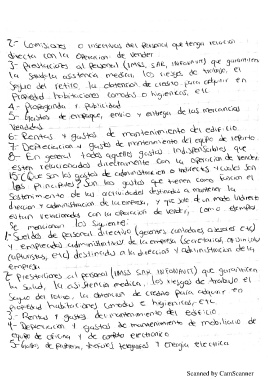 2- Comisiones o incentivos del personal que tenga relación
directa con la operación de vender
3- Prestaciones al personal (IMSS, SAR, INFONAVIT) que garanticen
la salud, la asistencia medica, los riesgos de trabajo, el
Seguro del retiro, la obtencion de credito para adquirir en
Propiedad habitaciones comodas o higienicas, etc
4- Propaganda y publicidad
5- Gastos de empaque, envio y entrega de las mercancias
vendidas
6- Rentas y gastos de mantenimiento del edificio
7- Depreciacion y gastos de mantenimiento del equipo de reparto
8- En general todos aquellos gastos indispensables que
esten relacionados directamente con la operacion de vender
¿Que son los gastos de administracion o indirectos y cuales son
los principales? Son los gastos que tienen como funcion el
sostenimiento de las actividades destinadas a mantener la
direccion y administracion de la empresa, y que solo de un modo indirecto
estan relacionados con la operacion de vender, como ejemplo
se mencionan los siguientes:
1- Sueldos de personal directivo (gerentes, contadores, asesores etc)
y empleados administrativos de la empresa (secretarias,
etc) destinados a la direccion y administracion de la
empresa
2- Prestaciones al personal (IMSS SAR INFONAVIT) que garanticen
la salud, la asistencia medica, los riesgos de trabajo el
Seguro del retiro, la obtencion de credito para adquirir en
propiedad habitaciones comodas e higienicas, etc
3- Rentas y gastos del mantenimiento del edificio
4- Depreciacion y gastos de mantenimiento de mobiliario de
equipo de oficina y de computo electronico
5- Gastos de telefonos y energia electrica
Scanned by CamScanner